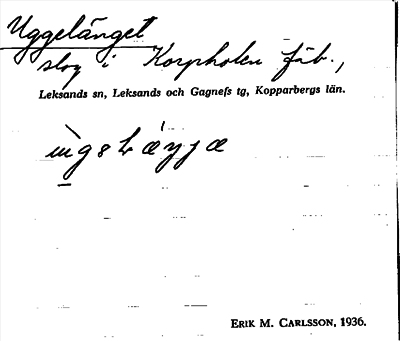 Uggelänget
slog i Korpholen fäb.,
Leksands sn, Leksands och Gagnefs tg, Kopparbergs län.
ERIK M. CARLSSON, 1936.